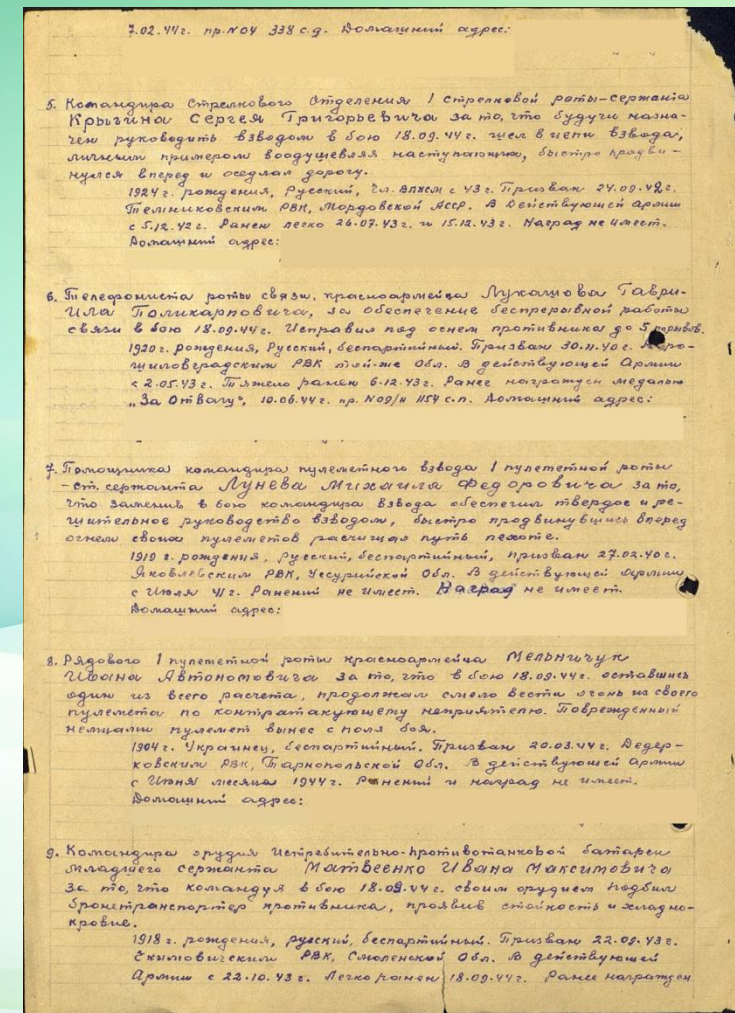 7.02.44г. пр.№04 338 с.д. Домашний адрес:
5. Командира Стрелкового Отделения 1 стрелковой роты-сержанта
Крыгина Сергея Григорьевича за то, что будучи назна-
чен руководить взводом в бою 18.09.44г. шел в цепи взвода,
личным примером воодушевляя наступающих, быстро продви-
нулся вперед и оседлал дорогу.
1924 г. рождения, Русский, Чл. ВЛКСМ с 43 г. Призван 24.09.42г.
Темниковским РВК, Мордовской АССР. В Действующей Армии
с 5.12.42г. Ранен легко 26.07.43г. и 15.12.43г. Наград не имеет.
Домашний адрес:
6. Телефониста роты связи, красноармейца Лукашова Гаври-
ила Поликарповича, за обеспечение беспрерывной работы
связи в бою 18.09.44г. Исправил под огнем противника до 5 порывов.
1920 г. рождения, Русский, беспартийный. Призван 30.11.40г. Воро-
шиловградским РВК той-же Обл. В действующей Армии
с 2.05.43г. Тяжело ранен 6.12.43г. Ранее награжден медалью
„За Отвагу", 10.06.44г. пр. №09/н 1154 с.п. Домашний адрес:
7. Помощника командира пулеметного взвода 1 пулеметной роты
-ст. сержанта Лунева Михаила Федоровича за то,
что заменив в бою командира взвода обеспечил твердое и ре-
шительное руководство взводом, быстро продвинувшись вперед
огнем своих пулеметов расчищал путь пехоте.
1919 г. рождения, Русский, беспартийный, призван 27.02.40г.
Яковлевским РВК, Уссурийской Обл. В действующей армии
с Июля 41г. Ранений не имеет. Наград не имеет.
Домашний адрес:
8. Рядового 1 пулеметной роты красноармейца Мельничук
Ивана Автономовича за то, что в бою 18.09.44г. оставшись
один из всего расчета, продолжал смело вести огонь из своего
пулемета по контратакующему неприятелю. Поврежденный
немцами пулемет вынес с поля боя.
1904 г. Украинец, беспартийный. Призван 20.03.44г. Дедер-
ковским РВК, Тарнопольской Обл. В действующей Армии
с Июня месяца 1944г. Ранений и наград не имеет.
Домашний адрес:
9. Командира орудия Истребительно-противотанковой батареи
младшего сержанта Матвеенко Ивана Максимовича
за то, что командуя в бою 18.09.44г. своим орудием подбил
бронетранспортер противника, проявив стойкость и хладно-
кровие.
1918 г. рождения, русский, беспартийный. Призван 22.09.43г.
Екимовичским РВК, Смоленской Обл. В действующей
Армии с 22.10.43г. Легко ранен 18.09.44г. Ранее награжден